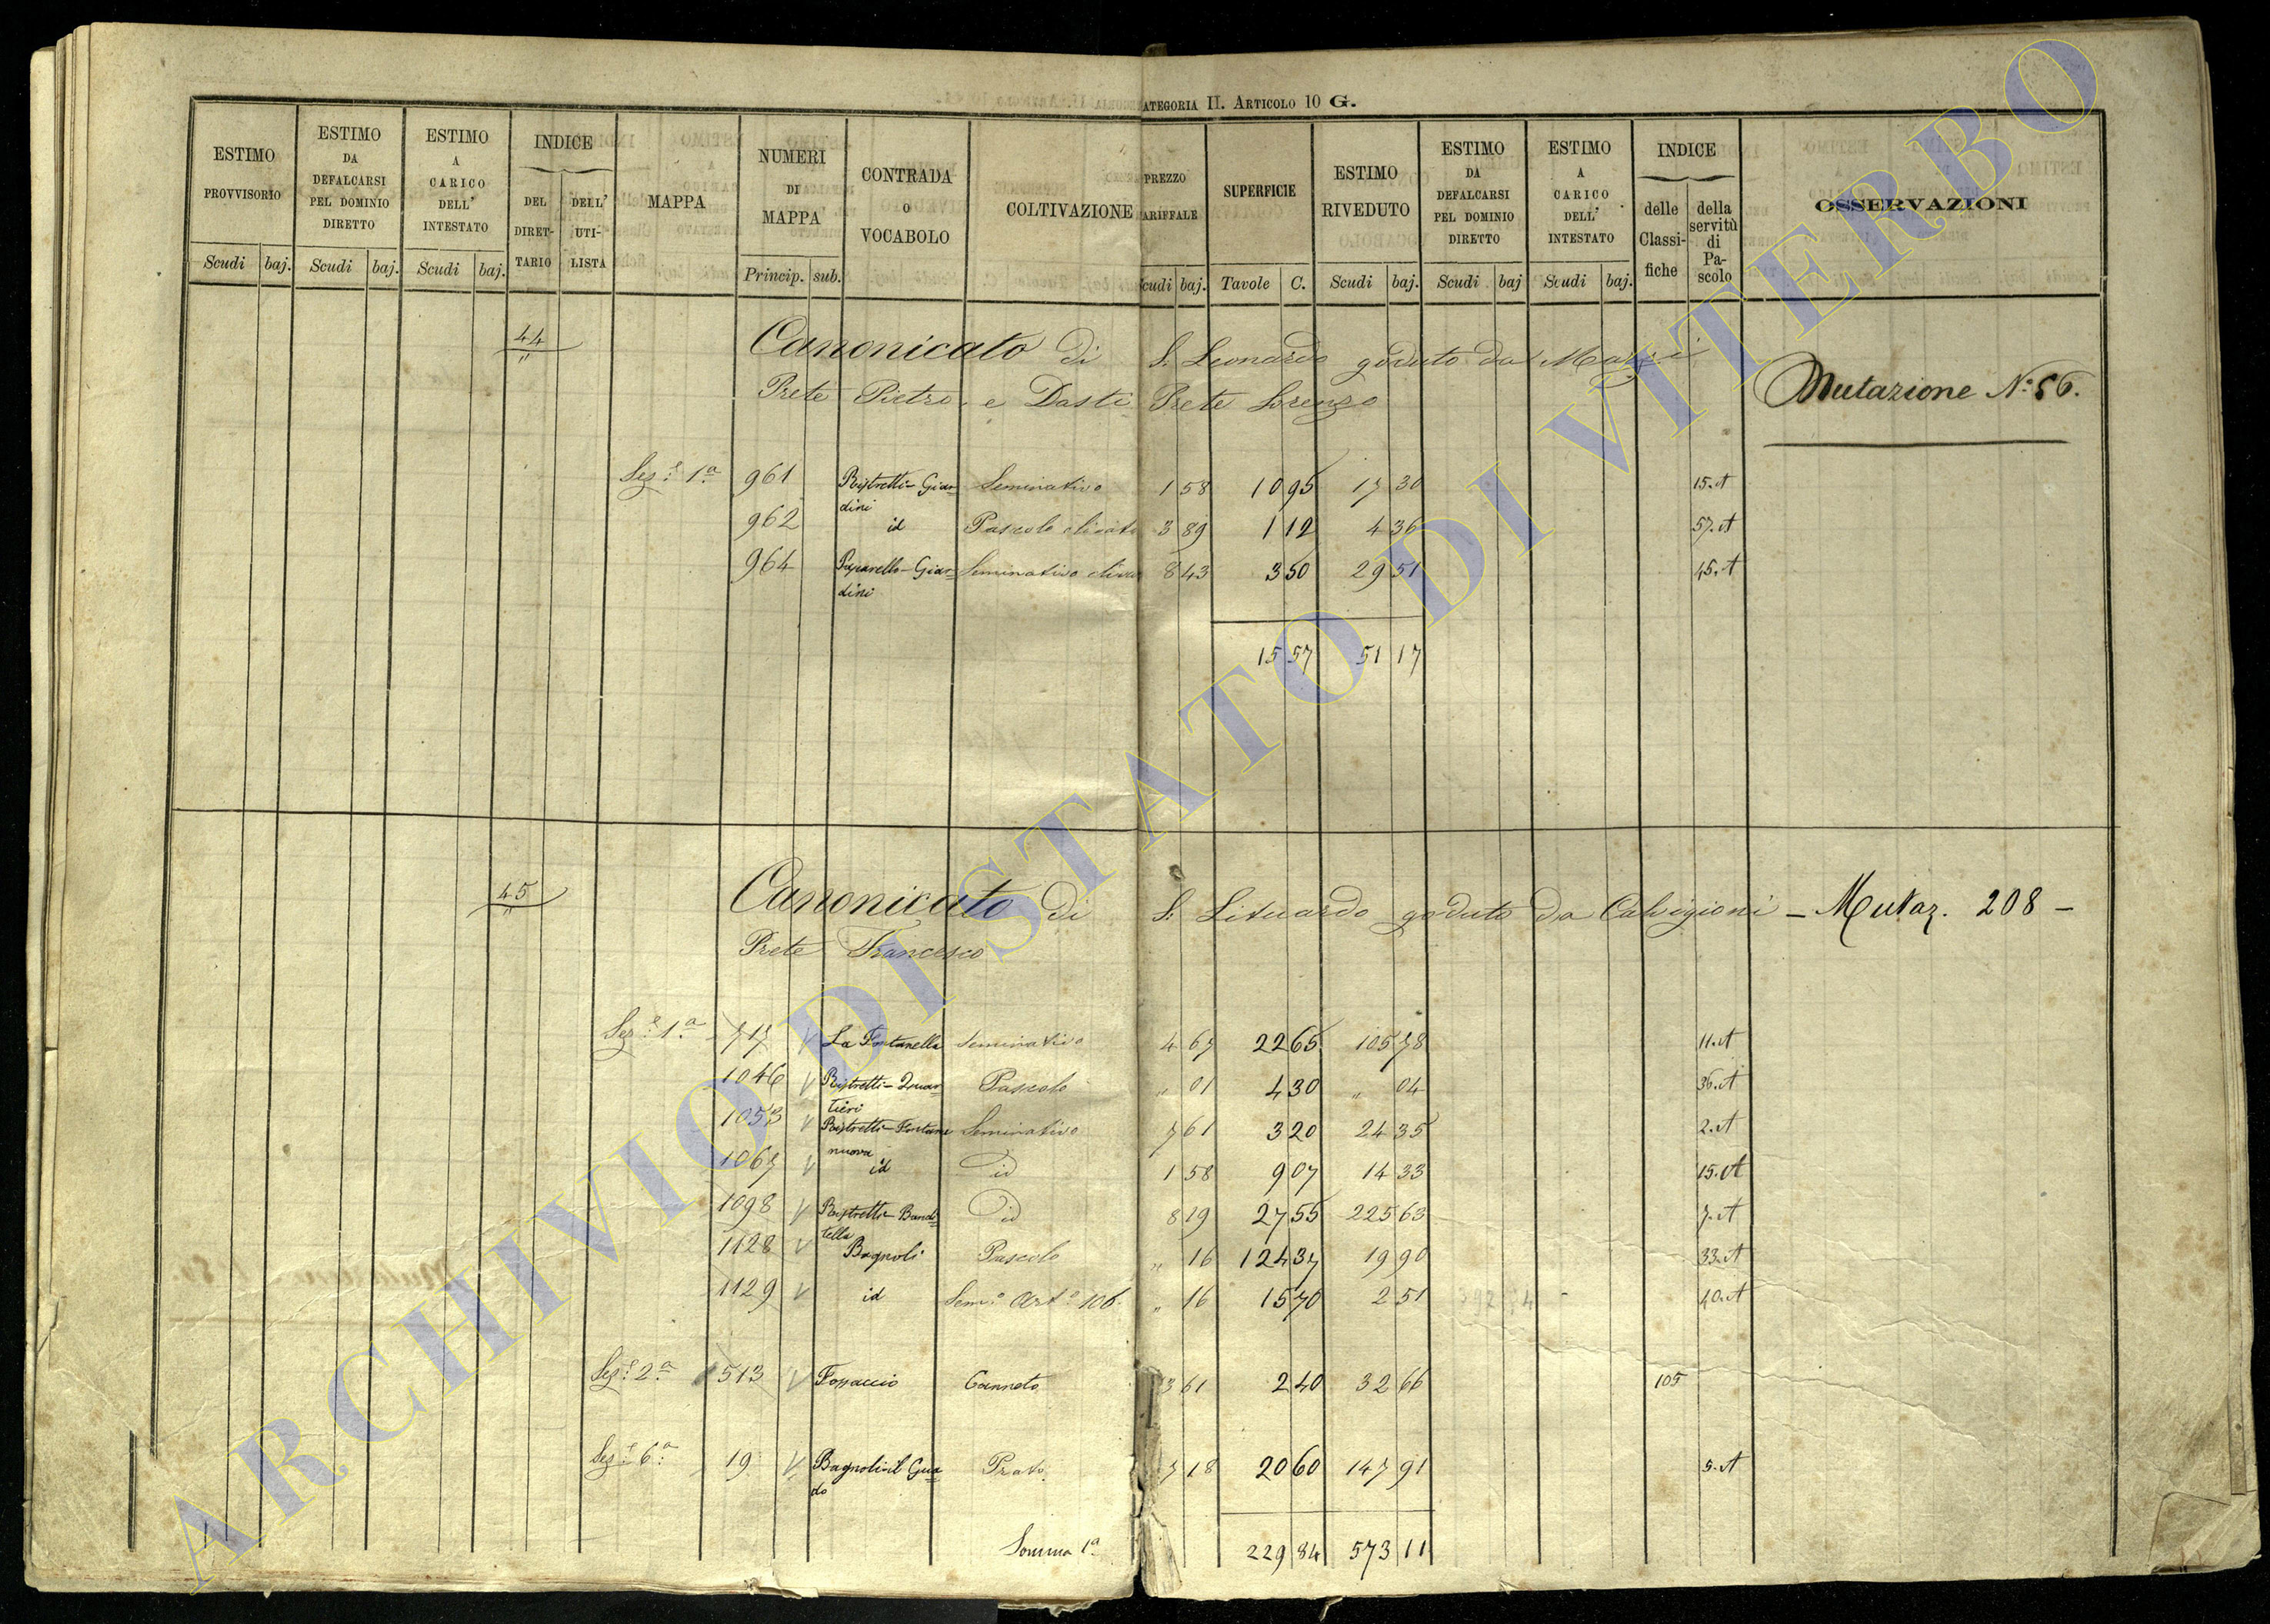 CATEGORIA II. ARTICOLO 10 G.
ESTIMO PROVVISORIO Scudi baj.
ESTIMO DA DEFALCARSI PEL DOMINIO DIRETTO Scudi baj.
ESTIMO A CARICO DELL' INTESTATO Scudi baj.
INDICE DEL DIRETTARIO DELL' UTILISTA
MAPPA
NUMERI DI MAPPA Princip. sub.
CONTRADA O VOCABOLO
COLTIVAZIONE
PREZZO TARIFFALE Scudi baj.
SUPERFICIE Tavole C.
ESTIMO RIVEDUTO Scudi baj.
ESTIMO DA DEFALCARSI PEL DOMINIO DIRETTO Scudi baj
ESTIMO A CARICO DELL' INTESTATO Scudi baj.
INDICE delle Classifiche della servitù di Pascolo
OSSERVAZIONI
44 Canonicato di S. Leonardo goduto da
Prete Pietro, e Dasti Prete Lorenzo
Mutazione N: 56.
Sez.e 1a 961 Ristretti-Giardini Seminativo 1 58 10 95 17 30 15. A
962 id Pascolo olivato 3 89 1 12 4 36 57. A
964 Giardini Seminativo olivato 8 43 3 50 29 51 45. A
15 57 51 17
45 Canonicato di S. goduto da Calvigioni - Mutaz. 208 -
Prete Francesco
Sez.e 1a 717 La Fontanella Seminativo 4 67 22 65 105 78 11. A
1046 Ristretti-Quartieri Pascolo " 01 4 30 " 04 36. A
1053 Ristretti-Fontana nuova Seminativo 7 61 3 20 24 35 2. A
1067 id id 1 58 9 07 14 33 15. A
1098 Ristretti-Banditella id 8 19 27 55 225 63 7. A
1128 Bagnoli Pascolo " 16 124 37 19 90 33. A
1129 id Sem.o Art.o 106. " 16 15 70 2 51 40. A
Sez.e 2a 513 Fossaccio Canneto 13 61 2 40 32 66 105
Sez.e 6a 19 Bagnoli il Guado Prato. 7 18 20 60 147 91 5. A
Somma 1a 229 84 573 11
ARCHIVIO DI STATO DI VITERBO